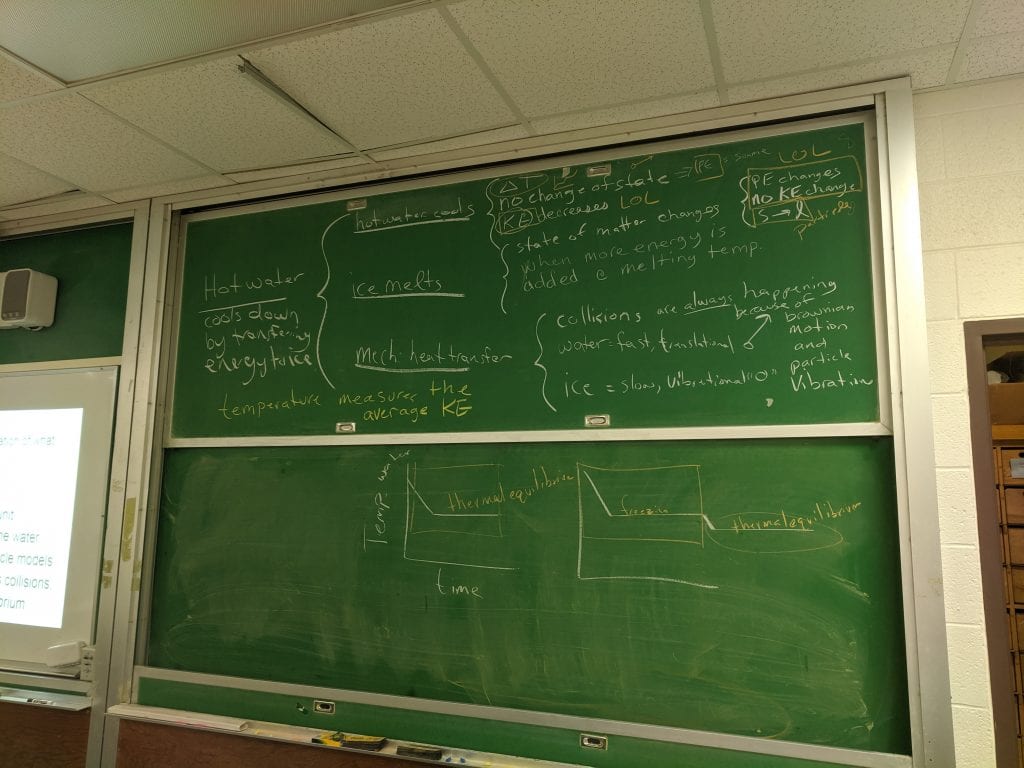 Hot water
cools down
by transferring
energy twice
hot water cools
ΔT
no change of state ⇒ PE is same
KE decreases LOL
LOL
PE changes
no KE change
S → l
ice melts
state of matter changes
when more energy is
added @ melting temp.
mech. heat transfer
collisions are always happening
because of
brownian
motion
and
particle
Vibration
water = fast, translational
ice = slow, vibrational "O"
temperature measures the
average KE
Temp
thermal equilibrium
time
freezin
thermal equilibrium
ation of what
unit
he water
cle models
s collisions
brium